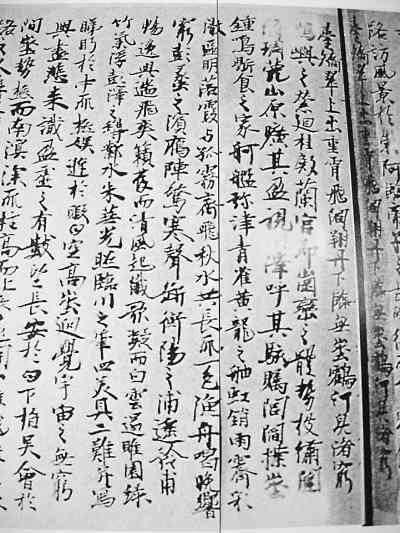 路訪風景於崇阿
上出重霄飛閣翔丹下臨無
翠上出重霄飛閣翔丹下臨無地鶴汀鳧渚窮
島嶼之縈迴桂殿蘭宮即岡巒之體勢披繡闥
山原曠其盈視川澤呼其駭矚閭閻撲地
鐘鳴鼎食之家舸艦彌津青雀黃龍之舳虹銷雨霽彩
徹區明落霞与孤霧齊飛秋水共長天一色漁舟唱晚響
窮彭蠡之濱雁陣驚寒聲斷衡陽之浦遙吟甫
暢逸興遄飛爽籟發而清風起纖歌凝而白雲遏睢園綠
竹氣浮彭澤之樽鄴水朱華光照臨川之筆四美具二難并窮
睇眄於中天極娛遊於暇日空高迥覺宇宙之無窮
興盡悲来識盈虛之有數望長安於日下指吳會於
間地勢極而南溟深天柱高而北